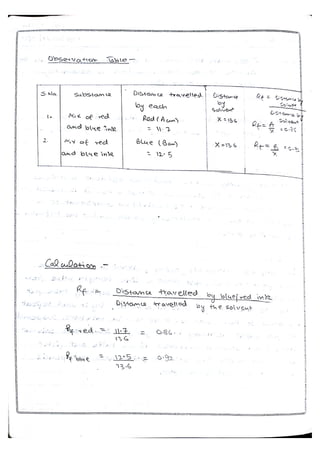 Observation Table -
S.No. Substance Distance travelled by each Distance by solvent Rf =
1. Mix of red and blue ink Red (A cm) = 11.7 X = 13.6 Rf = A/X
2. Mix of red and blue ink Blue (B cm) = 12.5 X = 13.6 Rf = B/X
Calculation :-
Rf = Distance travelled by blue/red ink
Distance travelled by the solvent
Rf red = 11.7 = 0.86
13.6
Rf blue = 12.5 = 0.92
13.6